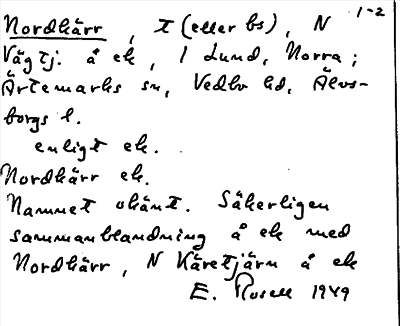 1-2
Nordkärr, t (eller bs), N
Vägtj. å ek, i Lund, Norra;
Ärtemarks sn, Vedbo hd, Älvs-
borgs l.
enligt ek.
Nordkärr ek.
Namnet okänt. Säkerligen
sammanblandning å ek med
Nordkärr, N Käretjärn å ek
E. Rosell 1949